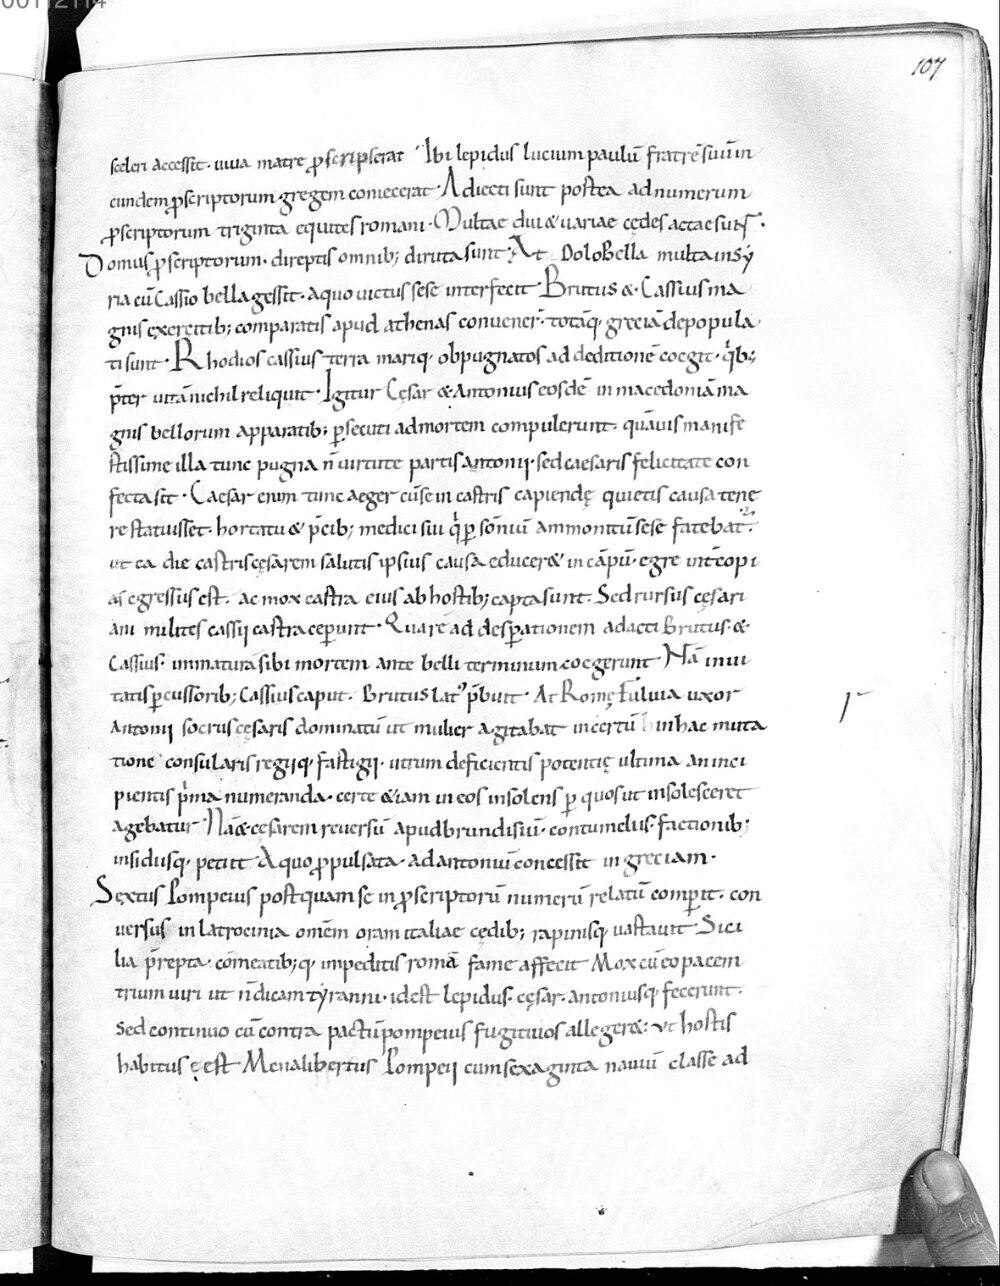 00112114
107
sceleri accessit. uiua matre p̱scripserat Ibi lepidus lucium paulū fratrē suum in
eundem p̱scriptorum gregem coniecerat. Adiecti sunt postea ad numerum
p̱scriptorum triginta equites romani. Multae diu & uariae cędes actae sunt.
Domus p̱scriptorum. direptis omnib; diruta sunt. At DoloBella multa in sy
ria cū Cassio bella gessit. a quo uictus sese interfecit. Brutus & Cassius ma
gnis exercitib; comparatis apud athenas conuener̄. totāq; greciā depopula
ti sunt. Rhodios cassius terra mariq; obpugnatos ad deditionē coegit. qib;
p̄ter uitā nichil reliquit. Igitur Cęsar & Antonius eosdē in macedoniā ma
gnis bellorum apparatib; p̱secuti ad mortem compulerunt. quāuis manife
stissime illa tunc pugna n̄ uirtute partis antonii. sed caesaris felicitate con
fecta sit. Caesar enim tunc aeger cū se in castris capiendę quietis causa tene
re statuisset. hortatu & p̄cib; medici sui qi p̱ somnū ammonitū sese fatebat̄.
ut ea die castris cęsarem salutis ipsius causa educer& in cāpū. egre int̄ copi
as egressus est. ac mox castra eius ab hostib; capta sunt. Sed rursus cęsari
ani milites cassii castra cep̱unt. Quare ad desp̱ationem adacti Brutus. &
Cassius. immatura sibi mortem ante belli terminum coegerunt Nā inui
tatis p̱cussorib; Cassius caput. Brutus lat᾿ p̄buit. At Romę fuluia uxor
Antonii socrus cęsaris dominatū ut mulier agitabat incertū in hac muta
tione consularis regiiq; fastigii. utrum deficientis potentię ultima an inci
pientis pima numeranda. certe &iam in eos insolens p̱ quos ut insolesceret
agebatur Nā & cęsarem reuersū apud brundisiū. contumeliis. factionib;
insidiisq; petiit A quo p̱pulsata. ad antoniū concessit in greciam.
Sextus Pompeius postquam se in p̱scriptorū numerū relatū comp̱it. con
uersus in latrocinia omēm oram italiae cędib; rapinisq; uastauit. Sici
lia p̄repta. cōmeatib;q; impeditis romā fame affecit Mox cū eo pacem
trium uiri ut n̄ dicam tyranni. id est lepidus. cęsar. antoniusq; fecerunt.
Sed continuo cū contra pactū pompeius fugitiuos alleger&. ut hostis
habitus est. Mena libertus Pompeii cum sexaginta nauiū classe ad